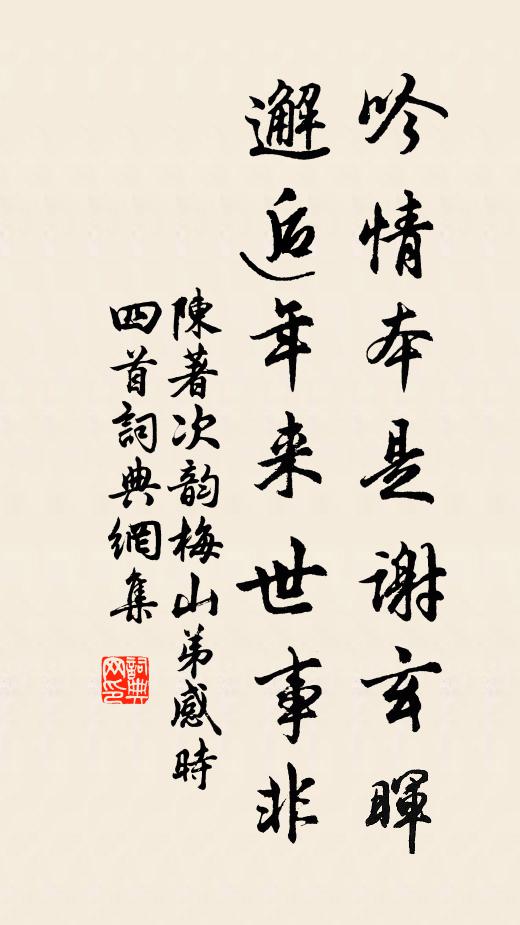 吟情本是谢玄暉
邂逅年来世事非
陳著次韵梅山弟感時
四首詞典網集
詞典网印